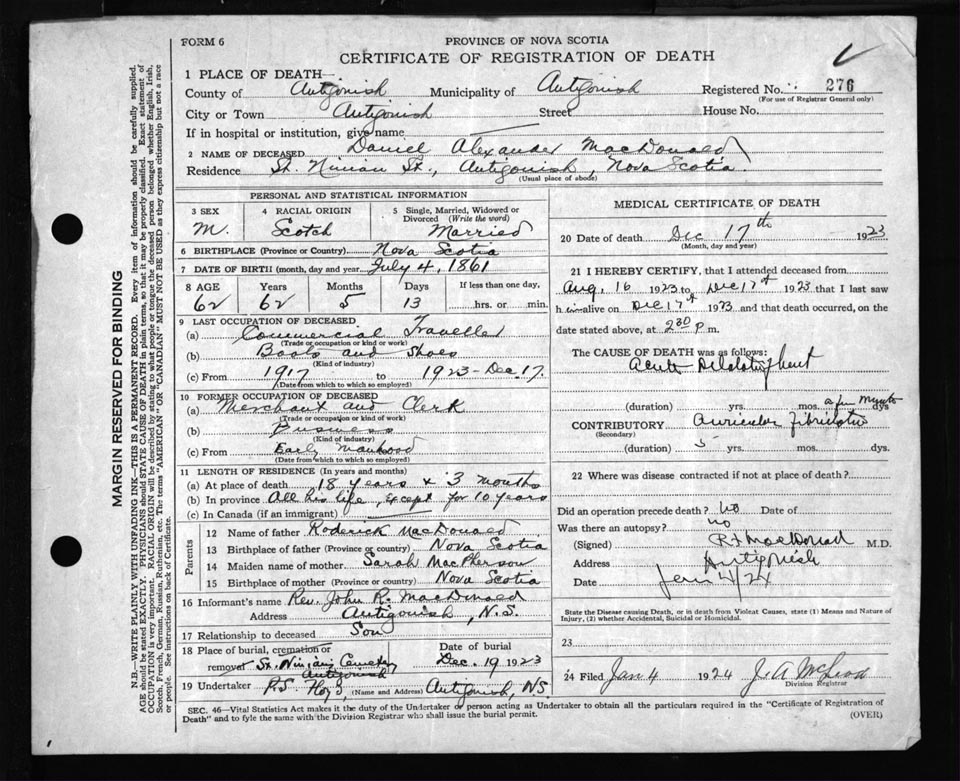 FORM 6
PROVINCE OF NOVA SCOTIA
CERTIFICATE OF REGISTRATION OF DEATH
1 PLACE OF DEATH—
County of Antigonish Municipality of Antigonish Registered No. 276
(For use of Registrar General only)
City or Town Antigonish Street House No.
If in hospital or institution, give name
2 NAME OF DECEASED Daniel Alexander MacDonald
Residence St. Ninian St., Antigonish, Nova Scotia.
(Usual place of abode)
PERSONAL AND STATISTICAL INFORMATION
3 SEX 4 RACIAL ORIGIN 5 Single, Married, Widowed or Divorced (Write the word)
M. Scotch Married
6 BIRTHPLACE (Province or Country) Nova Scotia
7 DATE OF BIRTH (month, day and year July 4, 1861
8 AGE Years Months Days If less than one day,
62 62 5 13 hrs. or min.
9 LAST OCCUPATION OF DECEASED
(a) Commercial Traveller
(Trade or occupation or kind of work)
(b) Boots and Shoes
(Kind of industry)
(c) From 1917 to 1923-Dec. 17.
(Date from which to which so employed)
10 FORMER OCCUPATION OF DECEASED
(a) Merchant and Clerk
(Trade or occupation or kind of work)
(b) Business
(Kind of industry)
(c) From Early Manhood
(Date from which to which so employed)
11 LENGTH OF RESIDENCE (In years and months)
(a) At place of death 18 years & 3 months
(b) In province All his life, except for 10 years
(c) In Canada (if an immigrant)
Parents
12 Name of father Roderick MacDonald
13 Birthplace of father (Province or country) Nova Scotia
14 Maiden name of mother Sarah MacPherson
15 Birthplace of mother (Province or country) Nova Scotia
16 Informant's name Rev. John R. MacDonald
Address Antigonish, N.S.
17 Relationship to deceased Son
18 Place of burial, cremation or removal St. Ninian's Cemetery Antigonish
Date of burial Dec. 19, 1923
19 Undertaker (Name and Address) Antigonish, N.S.
MEDICAL CERTIFICATE OF DEATH
20 Date of death Dec 17th 1923
(Month, day and year)
21 I HEREBY CERTIFY, that I attended deceased from
Aug. 16 1923 to Dec 17th 1923 that I last saw
him alive on Dec 17th 1923 and that death occurred, on the
date stated above, at 2 30 P m.
The CAUSE OF DEATH was as follows:
Acute
(duration) yrs. mos. a few days
CONTRIBUTORY Auricular Fibrillation
(Secondary)
(duration) 5 yrs. mos. days
22 Where was disease contracted if not at place of death?
Did an operation precede death? no Date of
Was there an autopsy? no
(Signed) MacDonald M.D.
Address Antigonish
Date Jan 4/24
State the Disease causing Death, or in death from Violent Causes, state (1) Means and Nature of
Injury, (2) whether Accidental, Suicidal or Homicidal.
23
24 Filed Jan 4 1924 J. A. McLeod
Division Registrar
SEC. 46—Vital Statistics Act makes it the duty of the Undertaker or person acting as Undertaker to obtain all the particulars required in the "Certificate of Registration of
Death" and to fyle the same with the Division Registrar who shall issue the burial permit.
(OVER)
MARGIN RESERVED FOR BINDING
N.B.—WRITE PLAINLY WITH UNFADING INK—THIS IS A PERMANENT RECORD. Every item of information should be carefully supplied.
AGE should be stated EXACTLY. PHYSICIANS should STATE CAUSE OF DEATH in plain terms, so that it may be properly classified. Exact statement of
OCCUPATION is very important. RACIAL ORIGIN will be described by stating to what people or tongue the deceased person belonged whether English, Irish,
Scotch, French, German, Russian, Ruthenian, etc. The terms "AMERICAN" OR "CANADIAN" MUST NOT BE USED as they express citizenship but not a race
or people. See instructions on back of Certificate.